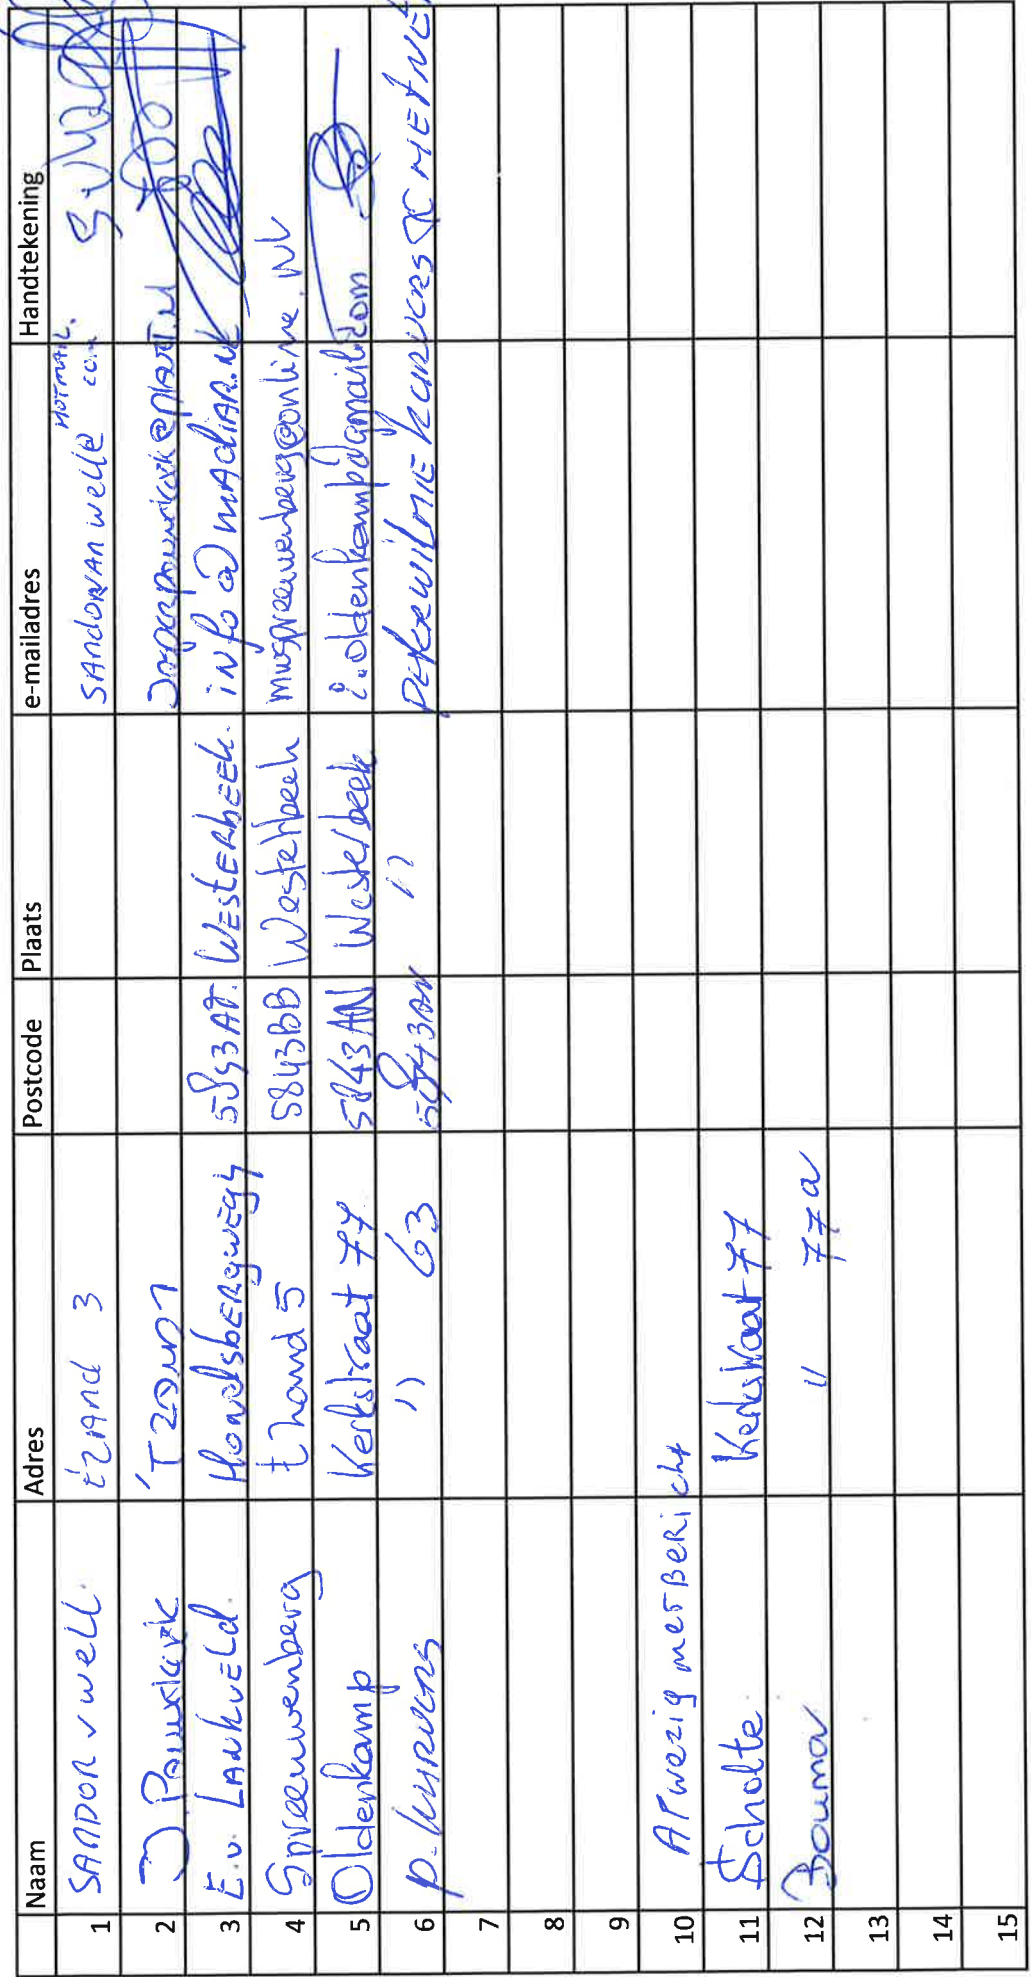 Naam Adres Postcode Plaats e-mailadres Handtekening
1 SANDOR v well. t'zand 3 SANdORVAN well@ HOTMAIL. com
2 'T ZAND 1
3 E.v. LANKVELd. HondsbERgwEg 4 5843 AT. WEStERbEEk. iNfo@mAdiAR.Nl
4 Spreeuwenberg t zand 5 5843BB Westerbeek mwspreeuwenberg@online.nl
5 Oldenkamp Kerkstraat 77 5843AN Westerbeek i.oldenkamp@gmail.com
6 p. kurvers " 63 5843AN "
7
8
9
10 AFwezig met BERicht
11 Scholte Kerkstraat 77
12 Bouma " 77a
13
14
15